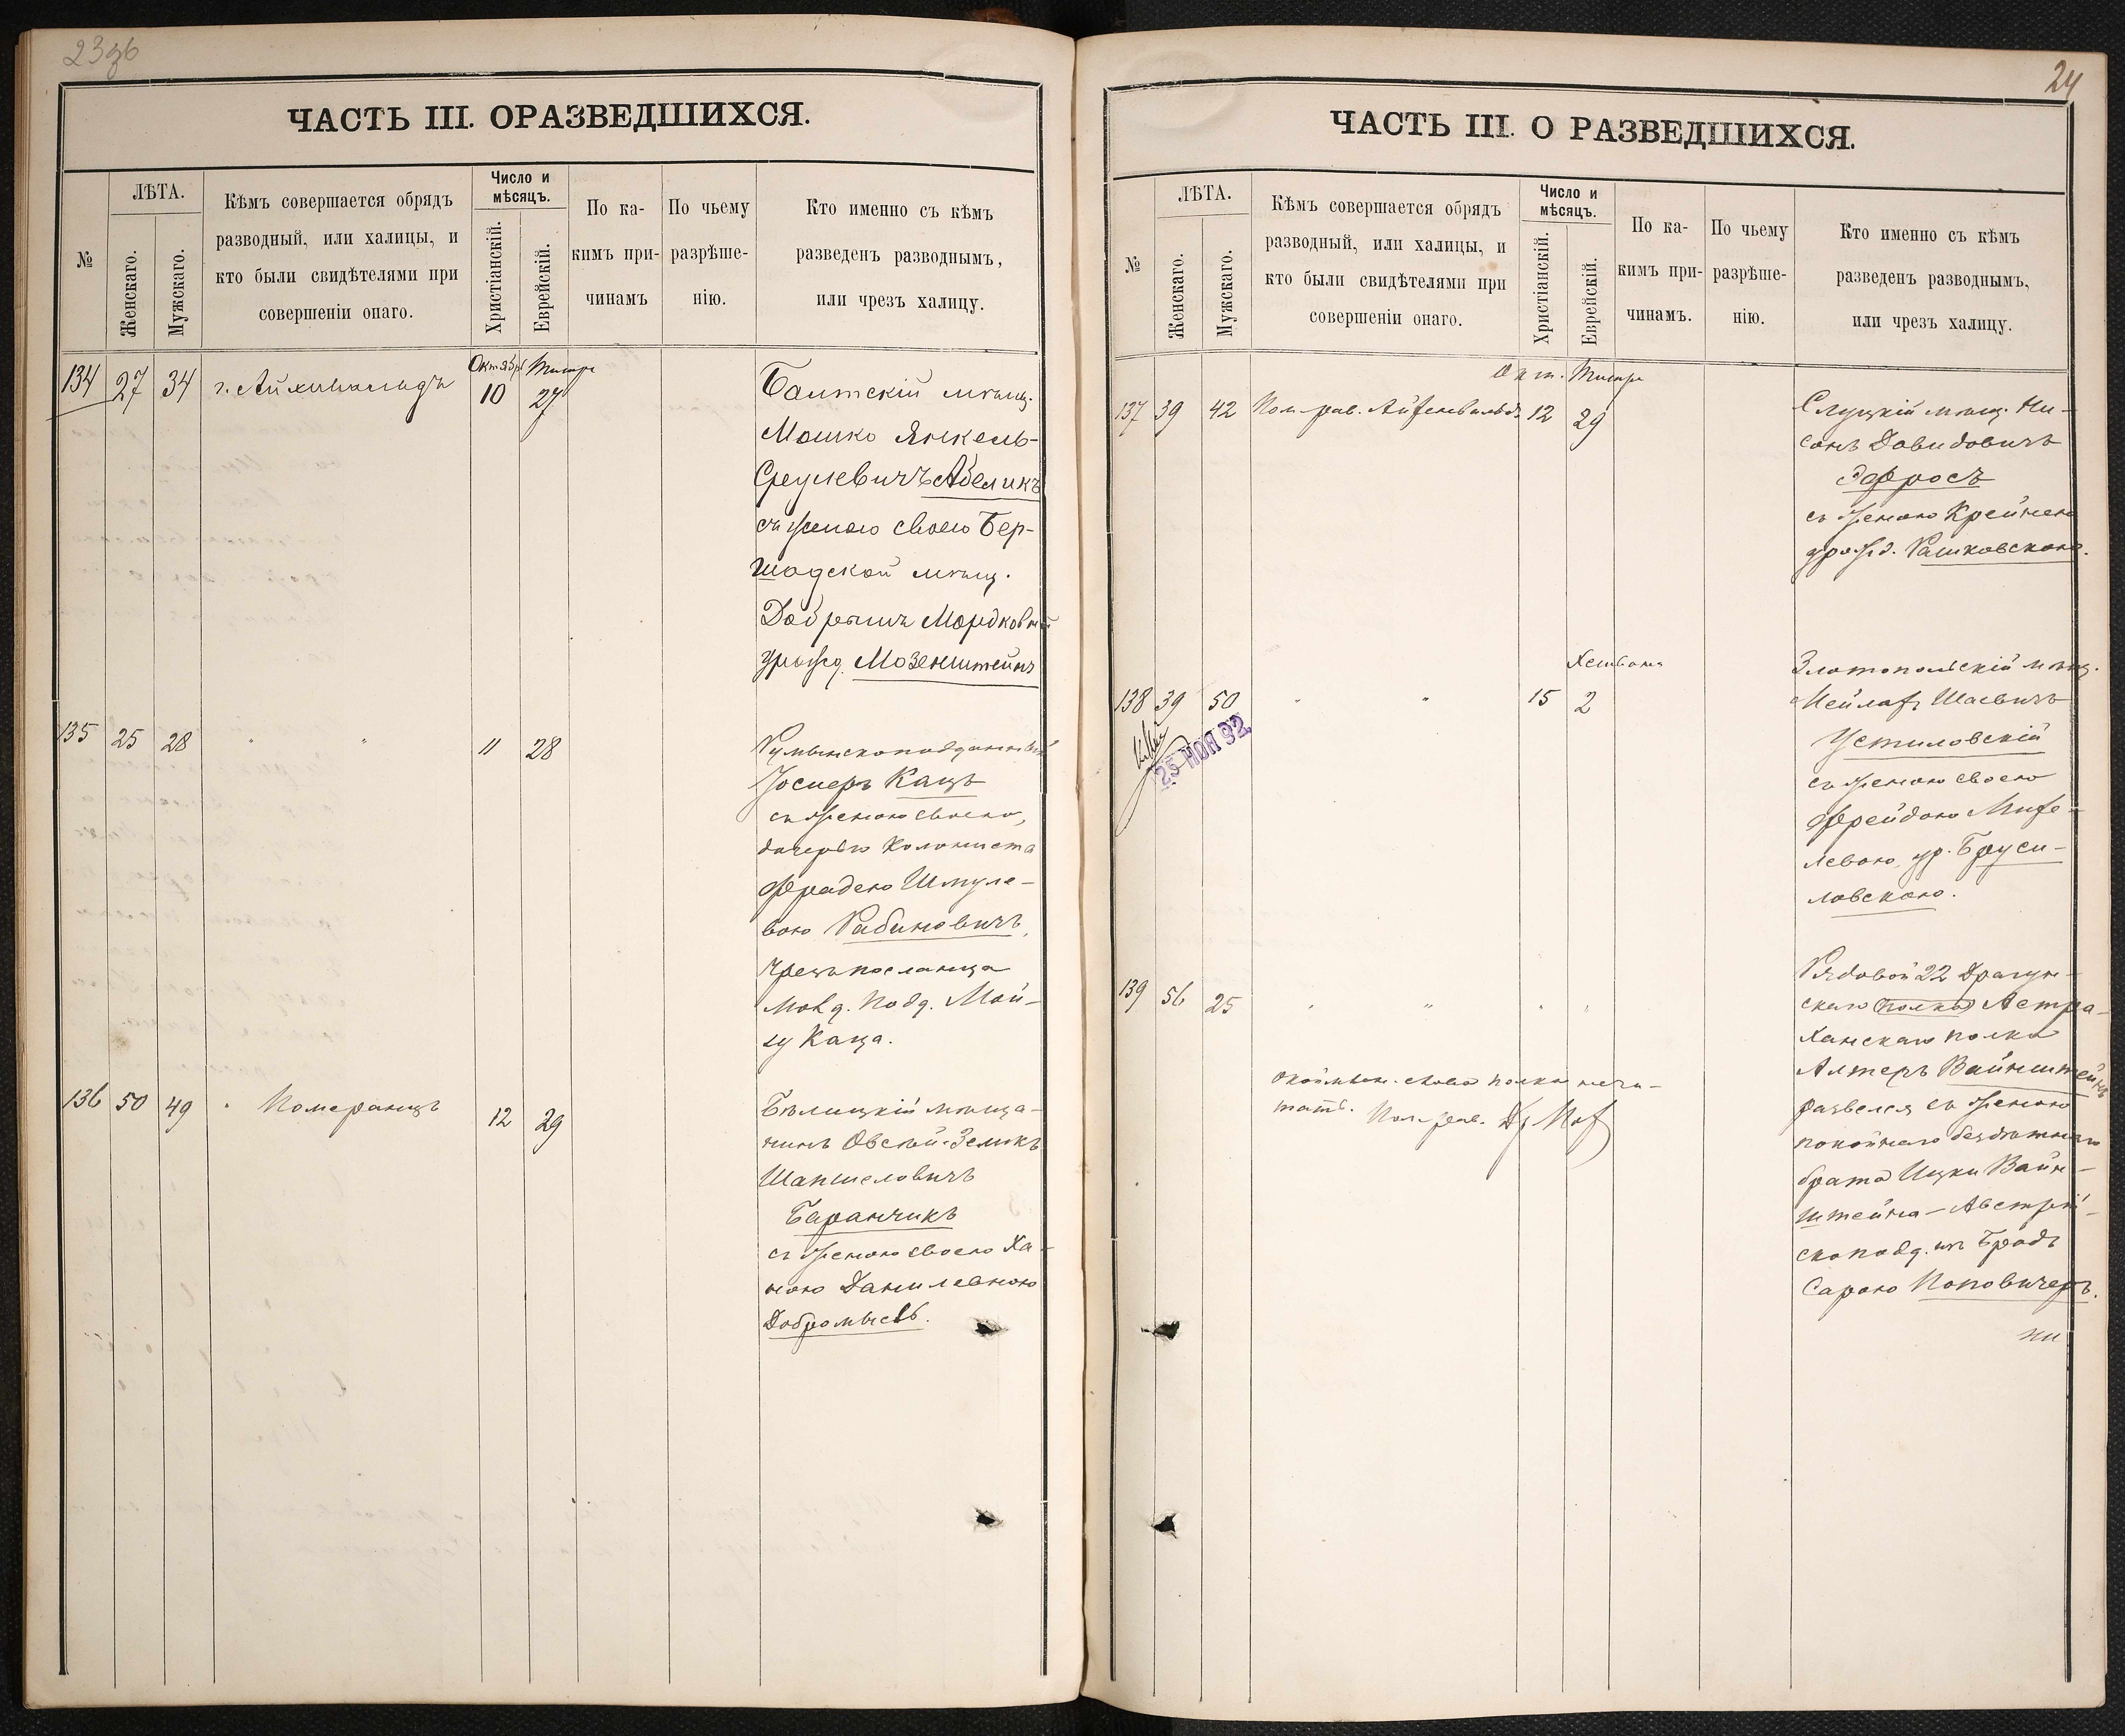 23об
ЧАСТЬ III. ОРАЗВЕДШИХСЯ.
№
ЛѢТА.
Женскаго.
Мужскаго.
Кѣмъ совершается обрядъ
разводный, или халицы, и
кто были свидѣтелями при
совершеніи онаго.
Число и
мѣсяцъ.
Христіанскій.
Еврейскій.
По ка-
кимъ при-
чинамъ
По чьему
разрѣше-
нію.
Кто именно съ кѣмъ
разведенъ разводнымъ,
или чрезъ халицу.
Октябр Тишре
134 27 34 г. Айхенвальдъ 10 27
Балтскій мѣщ.
Мошко Янкель-
Срулевичъ Абеликъ
съ женою своею Бер-
шадской мѣщ.
Мордков
урожд. Мозенштейнъ
135 25 28 " " 11 28
Румынскоподданный
Іосперъ Кацъ
съ женою своею,
дочерью колониста
Фрадею Шмуле-
вою Рабиновичъ,
чрезъ посланца
Молд. подд. Мой-
ну Каца.
136 50 49 " Померанцъ 12 29
Бѣлицкій мѣща-
нинъ Овсѣй-Зеликъ
Шапшеловичъ
Баранчикъ
съ женою своею Ха-
ною Даниловною
Добромысль.
24
ЧАСТЬ III. О РАЗВЕДШИХСЯ.
№
ЛѢТА.
Женскаго.
Мужскаго.
Кѣмъ совершается обрядъ
разводный, или халицы, и
кто были свидѣтелями при
совершеніи онаго.
Число и
мѣсяцъ.
Христіанскій.
Еврейскій.
По ка-
кимъ при-
чинамъ.
По чьему
разрѣше-
нію.
Кто именно съ кѣмъ
разведенъ разводнымъ,
или чрезъ халицу.
Окт. Тишре
137 39 42 Пом. рав. Айхенвальдъ 12 29
Слуцкій мѣщ. Ни-
сонъ Давидовичъ
Эфросъ
съ женою Крейнею
урожд. Рашковскою.
Хешвана
138 39 50 " " 15 2
25 НОЯ 92
Златопольскій мѣщ.
Мейлахъ Шаевичъ
Устиловскій
съ женою своею
Фрейдою Михе-
левою, ур. Бруси-
ловскою.
139 56 25 " " " "
Рядовой 22 Драгун-
скаго полка Астра-
ханскаго полка
Алтеръ Вайнштейнъ
развелся съ женою
покойнаго бездѣтнаго
брата Ицки Вайн-
штейна – Австрій-
скоподд. изъ Бродъ
Сарою Поповичеръ.
слово полка не чи-
тать. Пом. рав.